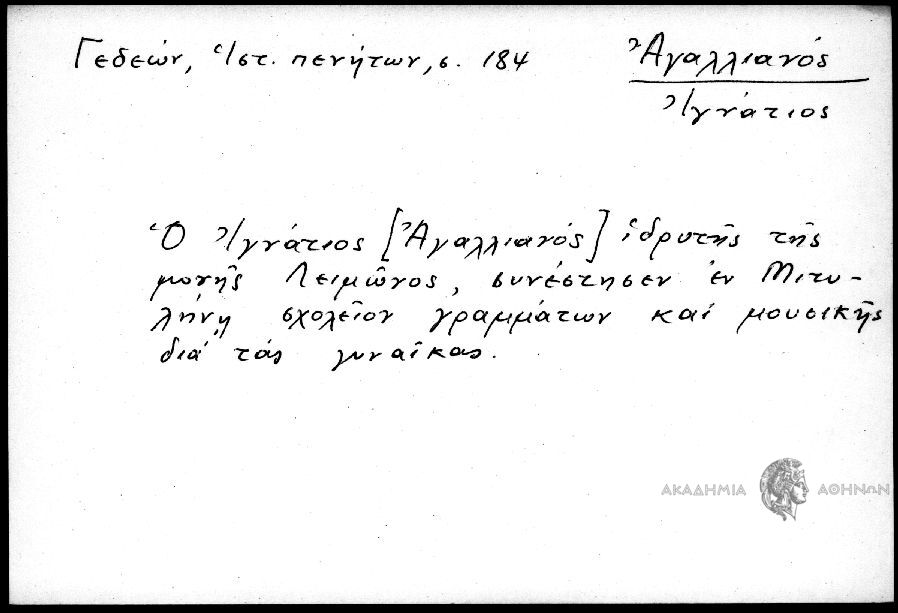 Γεδεών, Ἱστ. πενήτων, σ. 184
Ἀγαλλιανός
Ἰγνάτιος
Ὁ Ἰγνάτιος [Ἀγαλλιανός] ἱδρυτῆς τῆς
μονῆς Λειμῶνος, συνέστησεν ἐν Μιτυ-
λήνῃ σχολεῖον γραμμάτων καί μουσικῆς
διά τάς γυναῖκας.
ΑΚΑΔΗΜΙΑ ΑΘΗΝΩΝ